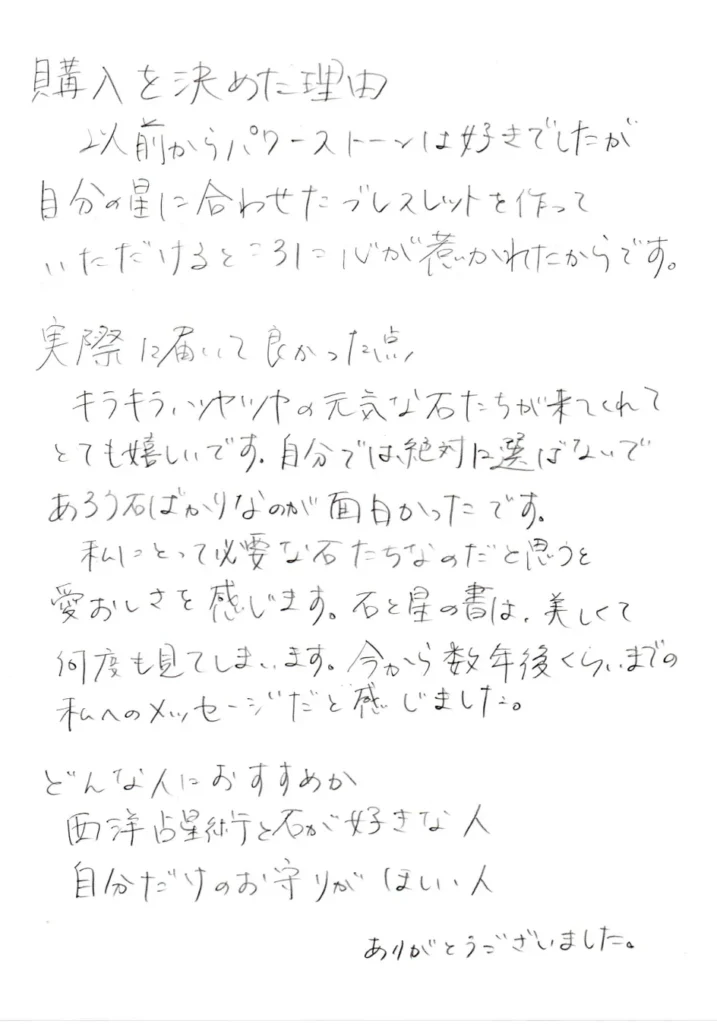 購入を決めた理由
以前からパワーストーンは好きでしたが
自分の星に合わせたブレスレットを作って
いただけるところに心が惹かれたからです。
実際に届いて良かった点
キラキラ、ツヤツヤの元気な石たちが来てくれて
とても嬉しいです。自分では絶対に選ばないで
あろう石ばかりなのが面白かったです。
私にとって必要な石たちなのだと思うと
愛おしさを感じます。石と星の書は、美しくて
何度も見てしまいます。今から数年後くらいまでの
私へのメッセージだと感じました。
どんな人におすすめか
西洋占星術と石が好きな人
自分だけのお守りがほしい人
ありがとうございました。